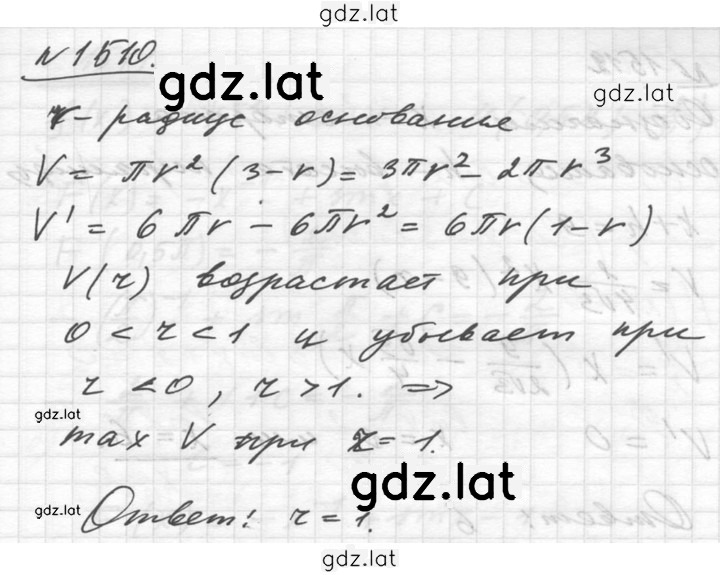 gdz.lat
№1510.
gdz.lat
gdz.lat
r - радиус основание
V = πr² (3-r) = 3πr² - 2πr³
V' = 6πr - 6πr² = 6πr(1-r)
V(r) возрастает при
0 < r < 1 и убывает при
r < 0, r > 1. =>
gdz.lat
max V при r = 1.
gdz.lat
gdz.lat
Ответ: r = 1.
gdz.lat